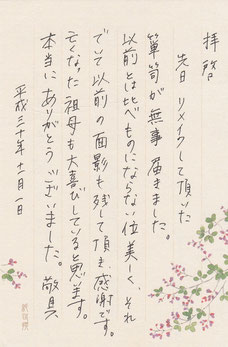 拝啓
先日リメイクして頂いた
箪笥が無事届きました。
以前とは比べものにならない位美しく、それ
でいて以前の面影も残して頂き、感謝です。
亡くなった祖母も大喜びしていると思います。
本当にありがとうございました。敬具
平成三十年十一月一日